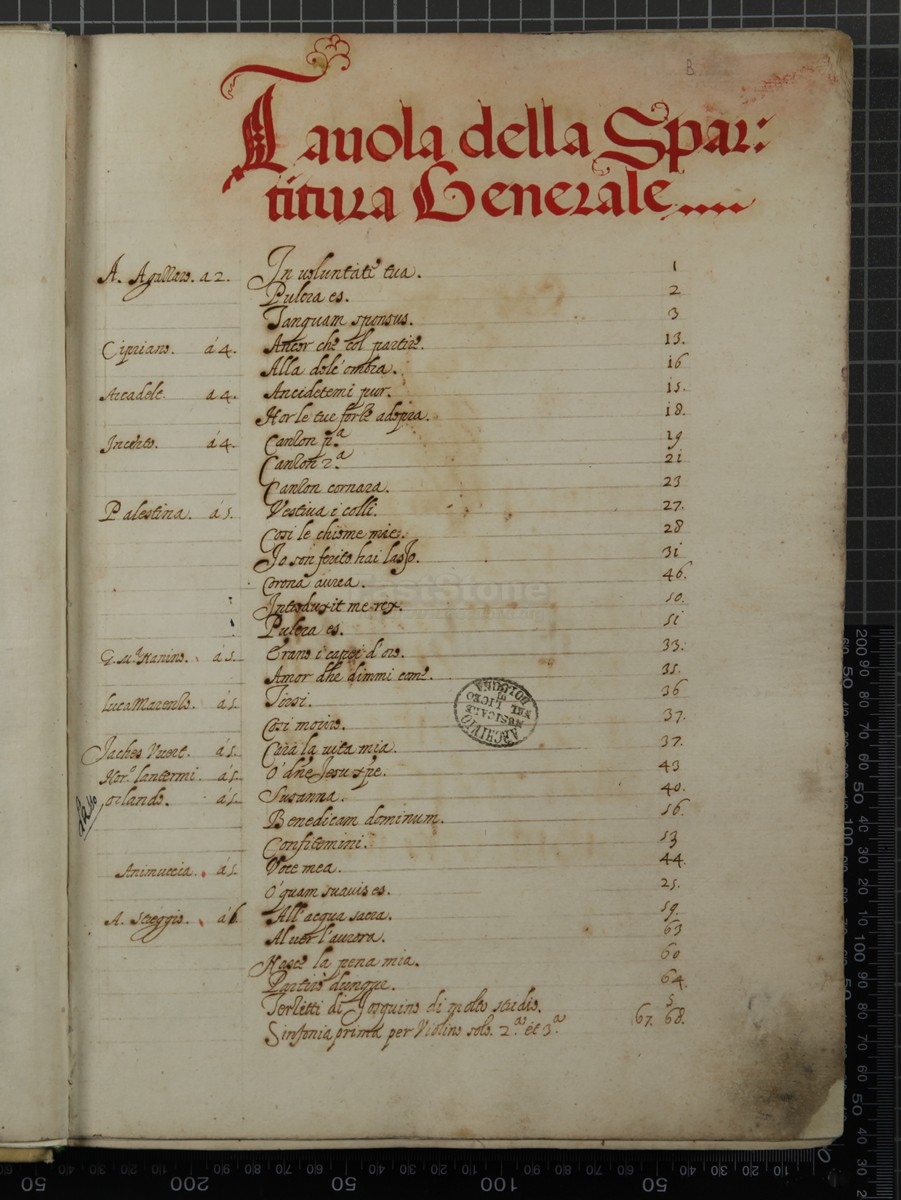 B
Tauola della Spar:
titura Generale....
A. Agallaro. a 2. In uoluntate tua. 1
Pulcra es. 2
Tanquam sponsus. 3
Cipriano. á 4. Ancor che col partire. 13.
Alla dolc' ombra. 16
Arcadele. a 4. Ancidetemi pur. 15.
Hor le tue forte adopra. 18.
Incerto. á 4. Canzon p.ª 19
Canzon 2.ª 21
Canzon cornara. 23
Palestina. á 5. Vestiua i colli. 27.
Cosi le chiome mie. 28
Io son ferito hai lasso. 31
Corona aurea. 46.
Introduxit me rex. 50.
Pulcra es. 51
G. M.ª Nanino. á 5. Erano i capei d'oro. 33.
Amor dhe dimmi come. 35.
Luca Marenzo. á 5. Tirsi. 36
Cosi moriro. 37.
Jaches Vuert. á 5. Cara la uita mia. 37.
Hor.º lancermi. á 5. O' dne Jesu xpe. 43
Lasso
orlando. á 5. Susanna. 40.
Benedicam dominum. 56.
Confitemini. 53
Animuccia. á 5. Voce mea. 44.
O' quam suauis es. 25.
A. Striggio. á 6 All'acqua sacra. 59.
Al uor l'aurora. 63
Nasce la pena mia. 60
Partirò dunque. 64.
Terzetti di Josquino di molto studio. 5
Sinfonia prima per Violino solo. 2.ª et 3.ª 67. 68.
ARCHIVIO
DEL LICEO
MUSICALE
DI
BOLOGNA